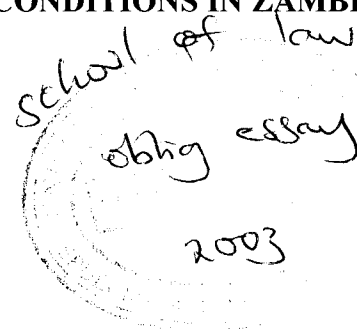 CONDITIONS IN ZAMBI
school of law
oblig essay
2003